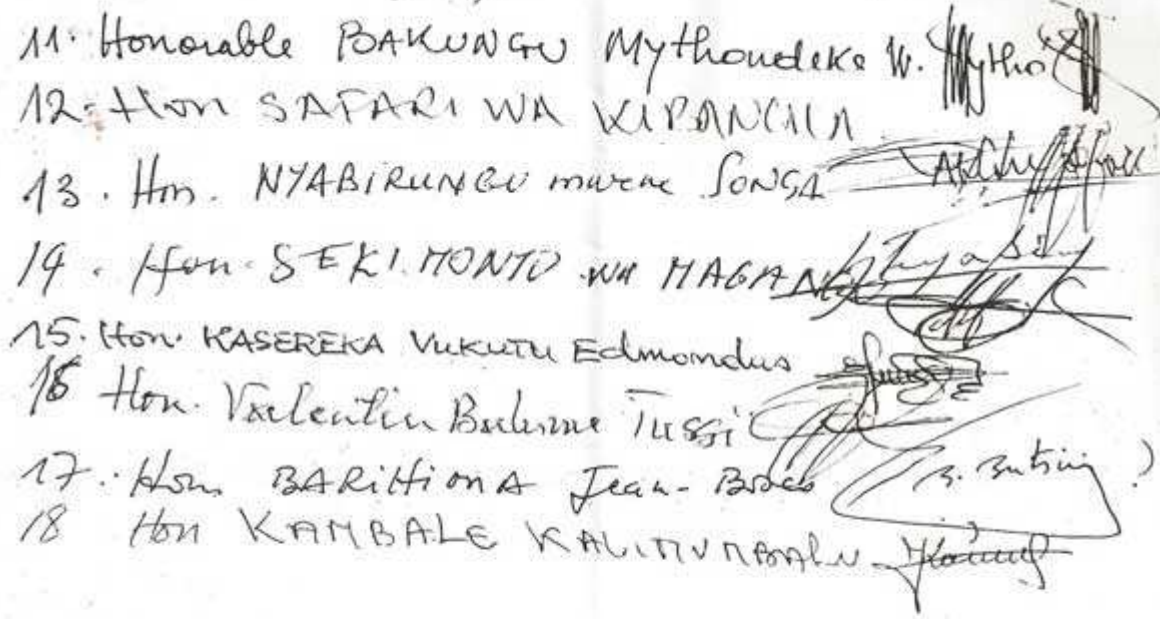 11. Honorable BAKUNGU Mythondeke W. Mytho
12. Hon SAFARI WA KIPANCILA
13. Hon. NYABIRUNGU mwene SONGA
14. Hon. SEKIMONYO WA MAGANGO
15. Hon. KASEREKA VUKUTU Edmondus
16 Hon. Valentin Tussi
17. Hon BARIHIONA Jean-Bosco
18 Hon KAMBALE KALIMUMBALU